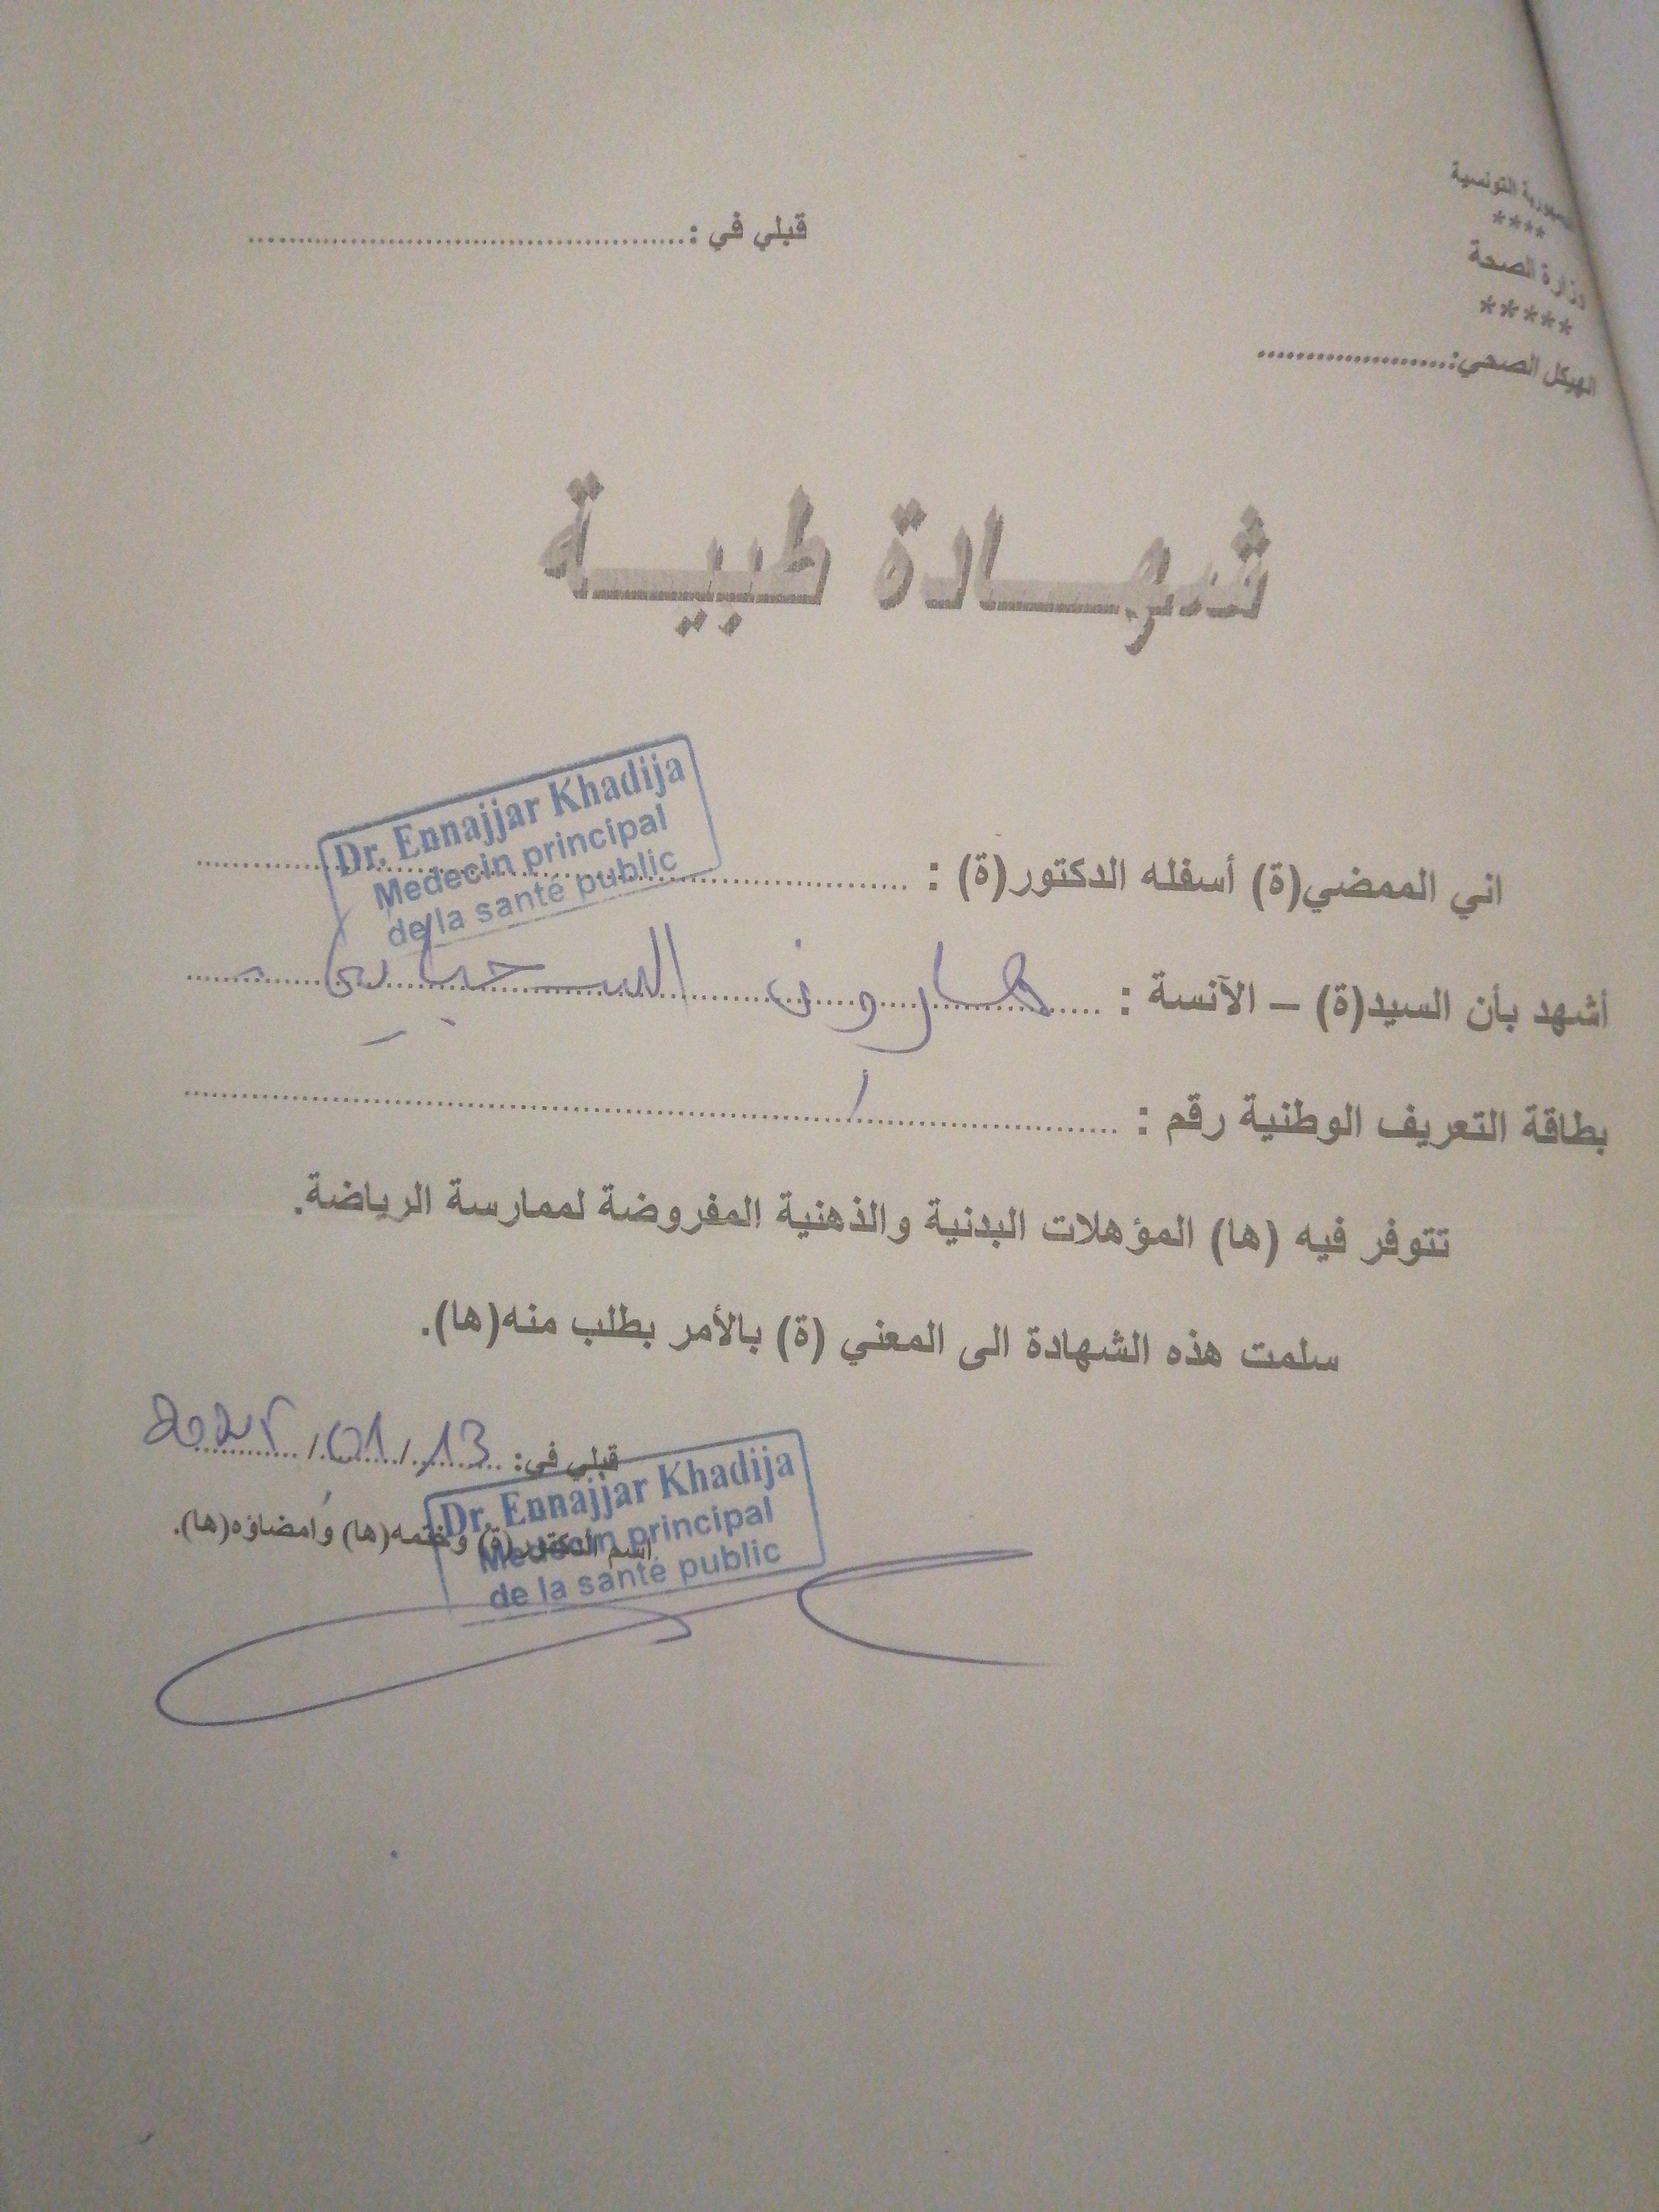 الجمهورية التونسية
****
وزارة الصحة
*****
الهيكل الصحي:......................
قبلي في :................................................
شهـــادة طبيـــة
اني الممضي(ة) أسفله الدكتور(ة) :
Dr. Ennajjar Khadija
Medecin principal
de la santé public
أشهد بأن السيد(ة) – الآنسة : هارون السحباني
بطاقة التعريف الوطنية رقم : /
تتوفر فيه (ها) المؤهلات البدنية والذهنية المفروضة لممارسة الرياضة.
سلمت هذه الشهادة الى المعني (ة) بالأمر بطلب منه(ها).
قبلي في: 13/01/
اسم الدكتور(ة) وختمه(ها) وامضاؤه(ها).
Dr. Ennajjar Khadija
Medecin principal
de la santé public